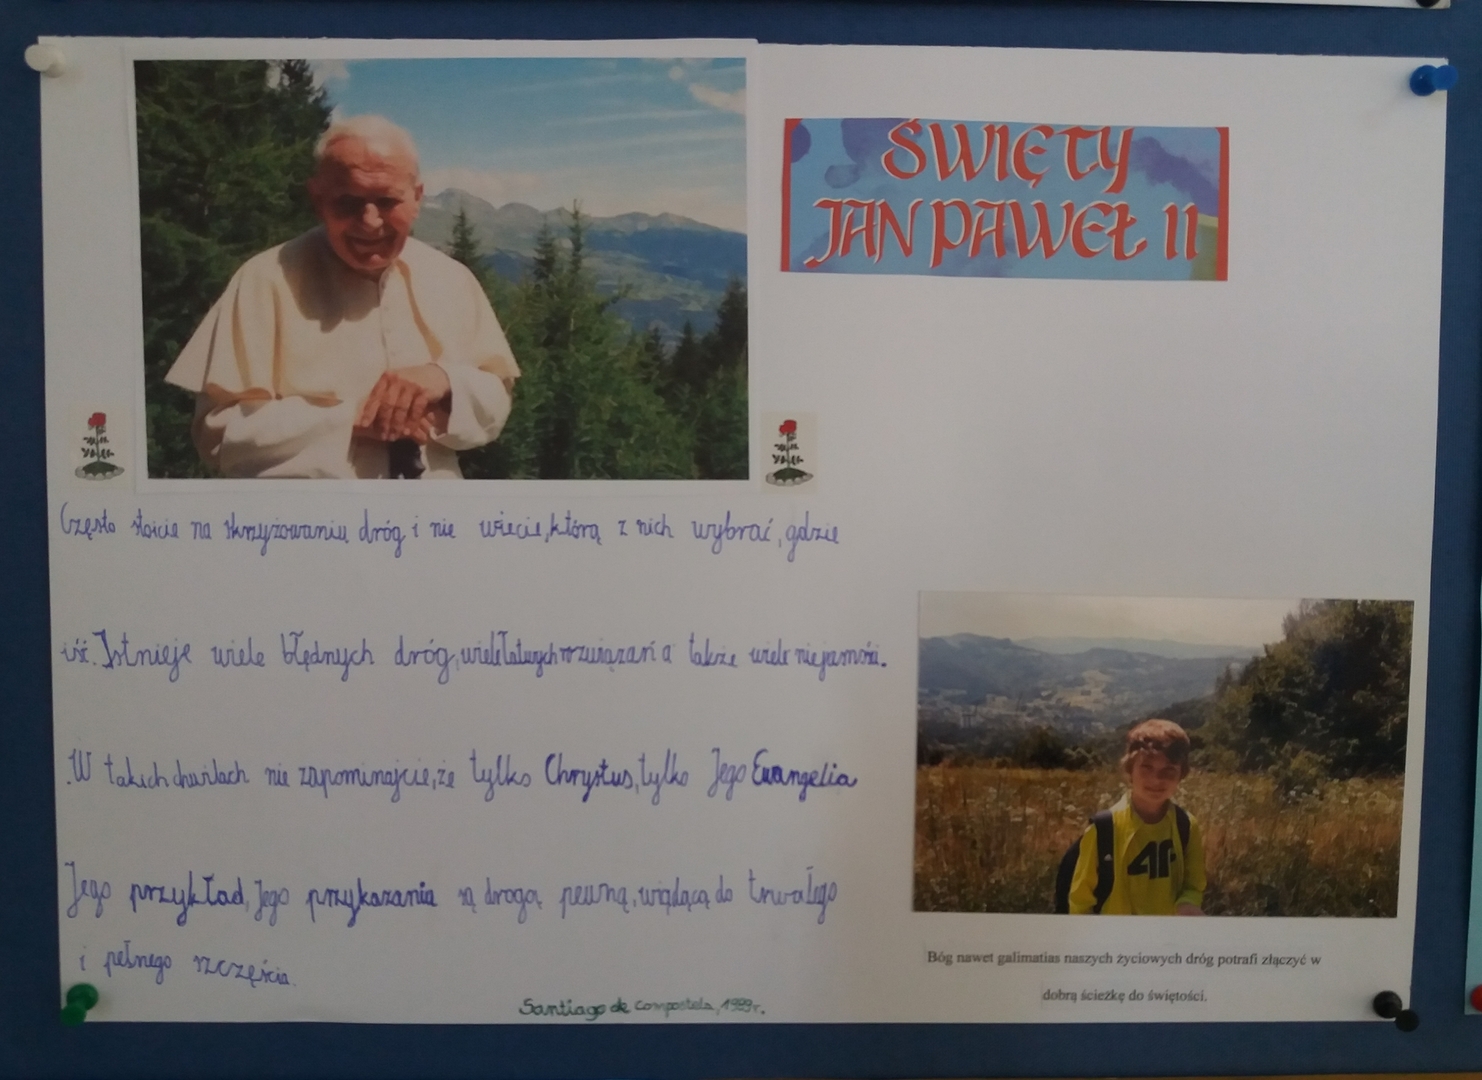 ŚWIĘTY
JAN PAWEŁ II
Często stoicie na skrzyżowaniu dróg i nie wiecie, którą z nich wybrać, gdzie
iść. Istnieje wiele błędnych dróg, wiele łatwych rozwiązań a także wiele niejasności.
W takich chwilach nie zapominajcie, że tylko Chrystus, tylko Jego Ewangelia
Jego przykład, Jego przykazania są drogą pewną, wiodącą do trwałego
i pełnego szczęścia.
Santiago de Compostela, 1989r.
Bóg nawet galimatias naszych życiowych dróg potrafi złączyć w
dobrą ścieżkę do świętości.